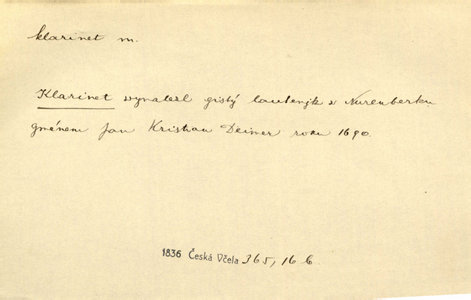 klarinet m.
Klarinet wynalezl gistý lautenjk w Nurenberku
gménem Jan Kristian Deiner roku 1690.
1836 Česká Včela 365, 16 b.